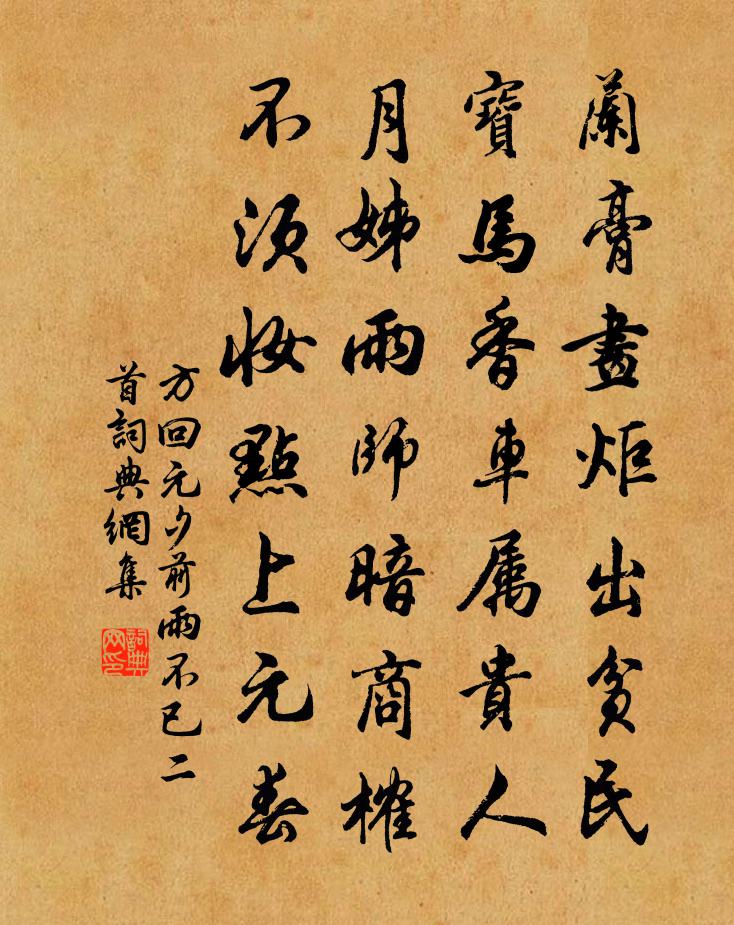 蘭膏畫炬出貧民
寶馬香車属貴人
月姊雨師暗商榷
不須妝點上元春
方回元夕前雨不已二
首詞典網集
詞典網印